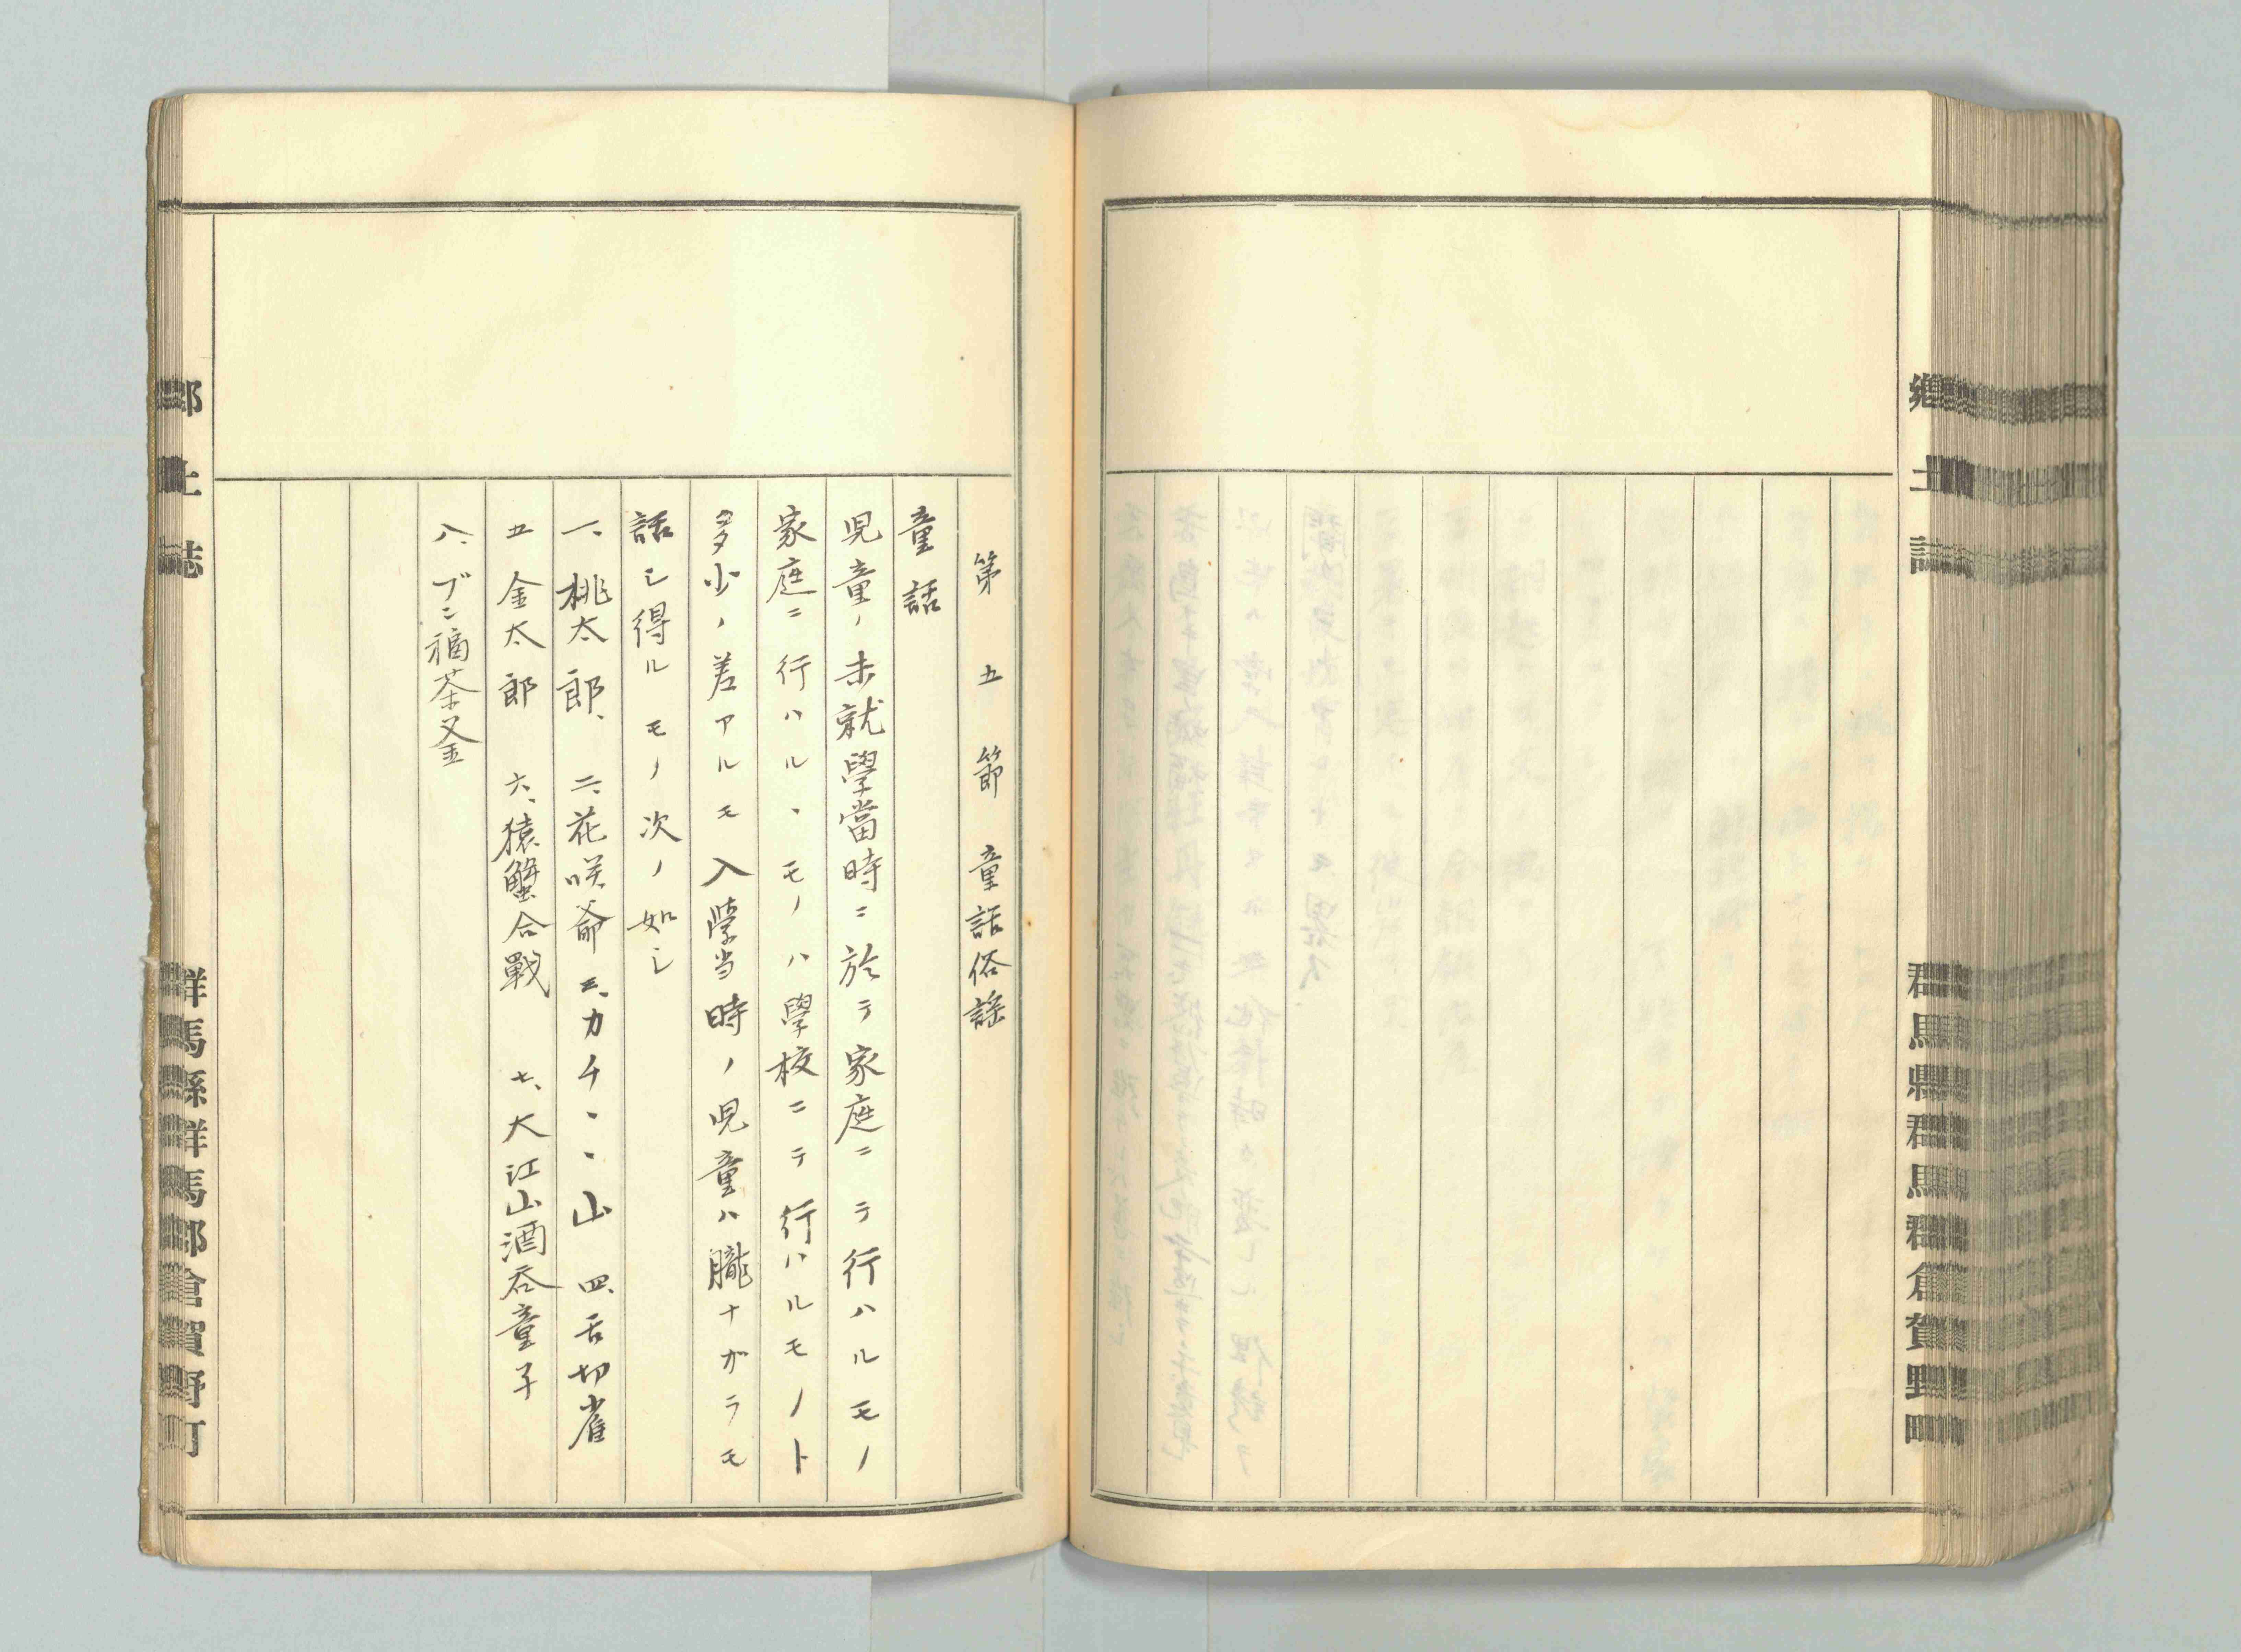 鄕土誌
群馬縣群馬郡倉賀野町
第五節　童話俗謡
童話
児童ノ未就學當時ニ於テ家庭ニテ行ハルモノ
家庭ニ行ハル、モノハ學校ニテ行ハルモノト
多少ノ差アルモ入學当時ノ児童ハ朧ナガラモ
話シ得ルモノ次ノ如シ
一、桃太郎、　二、花咲爺　三、カチヽヽ山　四、舌切雀
五　金太郎　六、猿蟹合戰　七、大江山酒呑童子
八、ブン福茶釜
郷土誌
群馬縣群馬郡倉賀野町